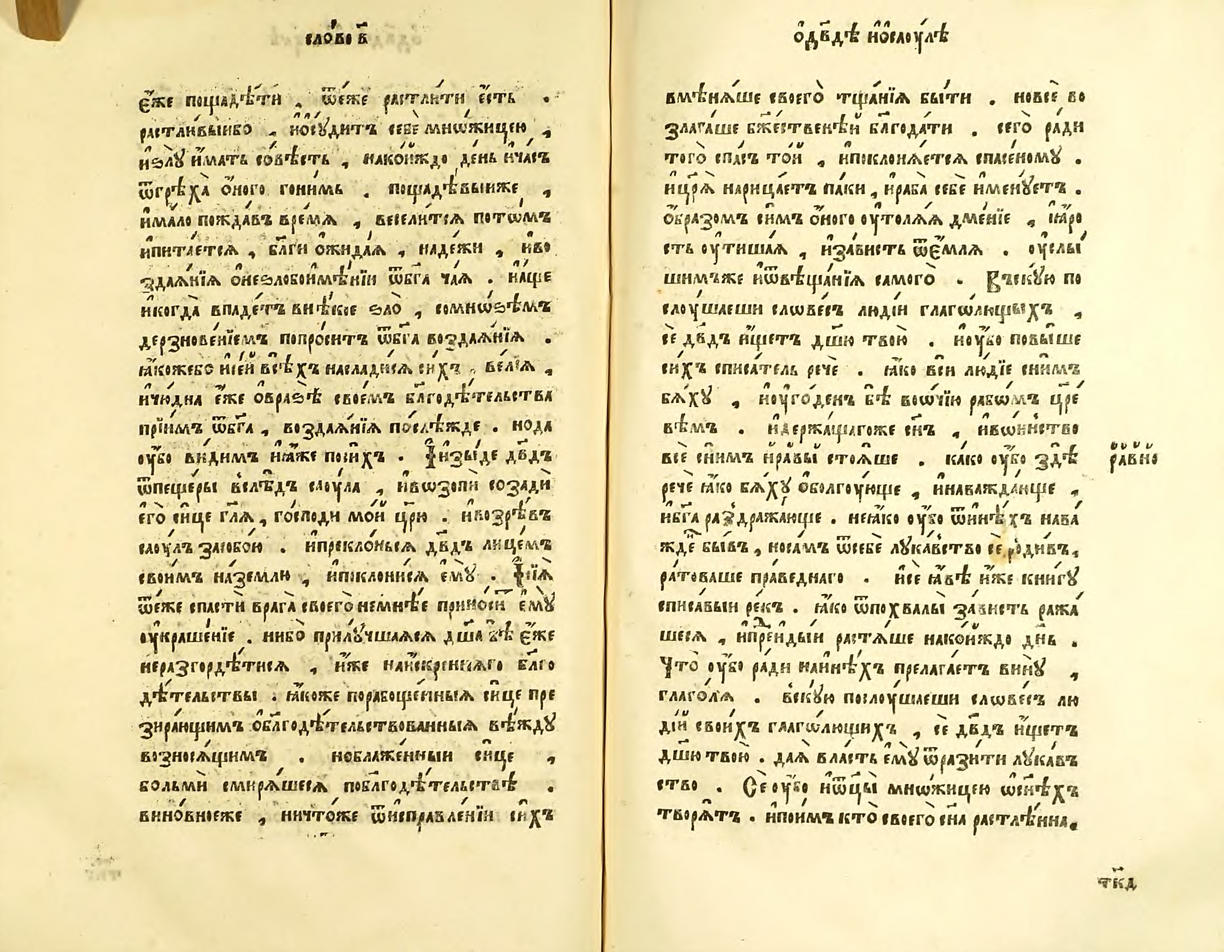 сло́во в҃
є҆́же пощадѣ́ти , ѿе́же растли́ти є҆́сть .
растли́выибо , и҆ѡ҆сꙋ́дитъ себѐ мно́жицею ,
и҆ѕлꙋ̀ и҆́мать со́вѣсть , нако́йждо де́нь и҆ча́съ
ѿгрѣха̀ о҆́ного гони́мь . пощадѣ́выиже ,
и҆ма́ло пожда́въ вре́мѧ , весели́тсѧ пото́мъ
и҆пита́етсѧ , бл҃ги ѡ҆жида́ѧ , наде́жи , и҆во
здаѧ́нїѧ ѡ҆неѕло́боимѣ́нїи ѿбг҃а ча́ѧ . и҆а҆́ще
и҆когда̀ впаде́тъ внѣ́кое ѕло̀ , сомно́ѕѣмъ
дерзнове́нїемъ попро́ситъ ѿбг҃а воздаѧ́нїѧ .
ꙗ҆́кожебо и҆се́й всѣ́хъ наслади́сѧ си́хъ , ве́лїѧ ,
и҆чю́дна є҆́же ѡ҆бра́ѕѣ свое́мъ бл҃годѣ́тельства
прїи́мъ ѿбг҃а , воздаѧ́нїѧ послѣ́жде . нода
ᲂу҆́бо ви́димъ и҆ꙗ҆́же поси́хъ . И҆зы́де дв҃дъ
ѿпеще́ры вслѣ́дъ саꙋ́ла , и҆возопѝ созадѝ
є҆гѡ̀ си́це гл҃ѧ , го́споди мо́й цр҃ю . и҆возрѣ́въ
саꙋ́лъ засобо́ю . и҆преклони́всѧ дв҃дъ лице́мъ
свои́мъ на́землю , и҆поклони́сѧ є҆мꙋ̀ . И҆сїѧ̀
ѿе́же спастѝ врага̀ своего̀ неме́нѣе прино́ситъ є҆мꙋ̀
ᲂу҆краше́нїе . нибо̀ прилꙋ́чшаѧсѧ дш҃а бѣ̀ є҆́же
неразгордѣ́тисѧ , и҆́же наи́скреннѧго бл҃го
дѣ́тельствы . ꙗ҆́коже порабоще́нныѧ си́це пре
зира́ющимъ ѡ҆бл҃годѣ́тельствованныѧ вѣ́ждꙋ
возносѧ́щимъ . ноблаже́нныи си́це ,
больмѝ смирѧ́шесѧ побл҃годѣ́тельствѣ .
вино́вноеже , ничто́же ѿисправле́нїи си́хъ
ѡ҆дв҃дѣ и҆ѡ҆саꙋ́лѣ
вмѣнѧ́ше своего̀ тща́нїѧ бы́ти . новсѐ во
злага́ше бж҃е́ственѣй бл҃года́ти . сего̀ ра́ди
того̀ спа́съ то́й , и҆поклонѧ́етсѧ спасе́номꙋ .
и҆цр҃ѧ̀ нарица́етъ па́ки , и҆раба̀ себѐ и҆менꙋ́етъ .
ѡ҆́бразомъ си́мъ о҆́ного ᲂу҆толѧ́ѧ дме́нїе , ꙗ҆́ро
сть ᲂу҆тиша́ѧ , и҆за́висть ѿе́млѧ . ᲂу҆слы́
шимъже и҆ѿвѣща́нїѧ самого̀ . Въскꙋ́ю по
слꙋ́шаеши слове́съ люді́й глаго́лющыхъ ,
сѐ дв҃дъ и҆́щетъ дш҃ю твою̀ . и҆ᲂу҆́бо повы́ше
си́хъ списа́тель речѐ . ꙗ҆́ко всѝ лю́дїе сни́мъ
бѧ́хꙋ , и҆ᲂу҆го́денъ бѣ̀ воо́чїю рабѡ́мъ цр҃е
вѣмъ . и҆держа́щагоже сн҃ъ , и҆во́инство
всѐ сни́мъ и҆ра́вы стоѧ́ше . ка́ко ᲂу҆́бо здѣ̀
речѐ ꙗ҆́ко бѧ́хꙋ ѡ҆болгꙋ́юще , и҆наважда́юще ,
и҆бг҃а раздража́юще . неꙗ҆́ко ᲂу҆́бо ѿи́нѣхъ нава
жде́ бы́въ , носа́мъ ѿсебѐ лꙋка́вство сѐ роди́въ,
ра́товаше пра́веднаго . и҆сѐ ꙗ҆́вѣ и҆́же кни́гꙋ
списа́выи ре́къ . ꙗ҆́ко ѿпохвалы̀ за́висть ража́
шесѧ , и҆пре́идыи растѧ́ше нако́йждо дн҃ь .
Что̀ ᲂу҆́бо ра́ди наи́нѣхъ прелага́етъ винꙋ̀ ,
глаго́лѧ . вскꙋ́ю послꙋ́шаеши слове́съ лю
ді́й свои́хъ глаго́лющихъ , сѐ дв҃дъ и҆́щетъ
дш҃ю твою̀ . даѧ̀ вла́сть є҆мꙋ̀ ѿрази́ти лꙋка́в
ство . Сѐ ᲂу҆́бо и҆ѻ҆тцы̀ мно́жицею ѡ҆сн҃ѣхъ
творѧ́тъ . и҆пои́мъ кто̀ своего̀ сн҃а растлѣ́нна.
ра́вно
тк҃д